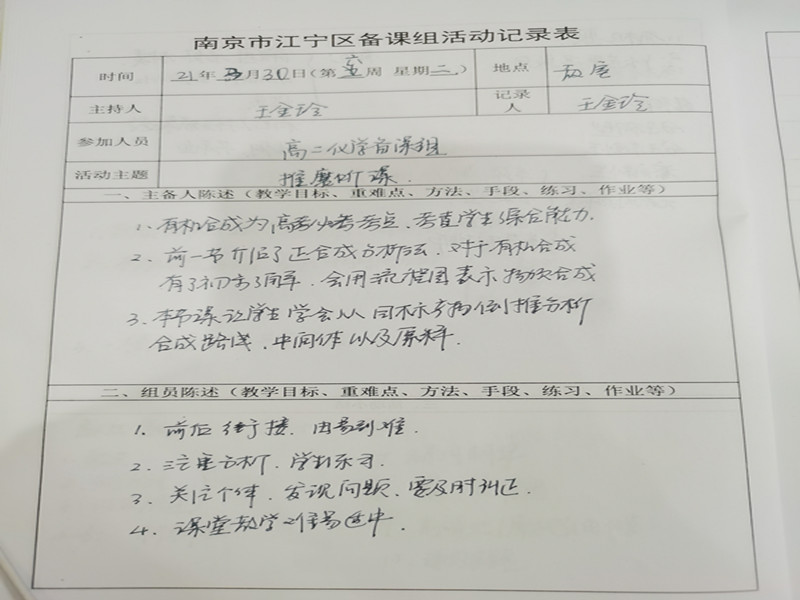 南京市江宁区备课组活动记录表
时间 21年3月30日(第 周 星期二) 地点
主持人 王金玲 记录人 王金玲
参加人员 高二化学备课组
活动主题 推磨听课.
一、主备人陈述(教学目标、重难点、方法、手段、练习、作业等)
1. 有机合成为高考必考考点、考查学生综合能力.
2. 前一节介绍了正合成分析法、对于有机合成
有了初步了解、会用流程图表示物质合成
3. 本节课让学生学会从目标产物倒推分析
合成路线、中间体以及原料.
二、组员陈述(教学目标、重难点、方法、手段、练习、作业等)
1. 前后衔接、由易到难.
2. 注重分析、学生练习.
3. 关注个体、发现问题、要及时纠正.
4. 课堂教学难易适中.